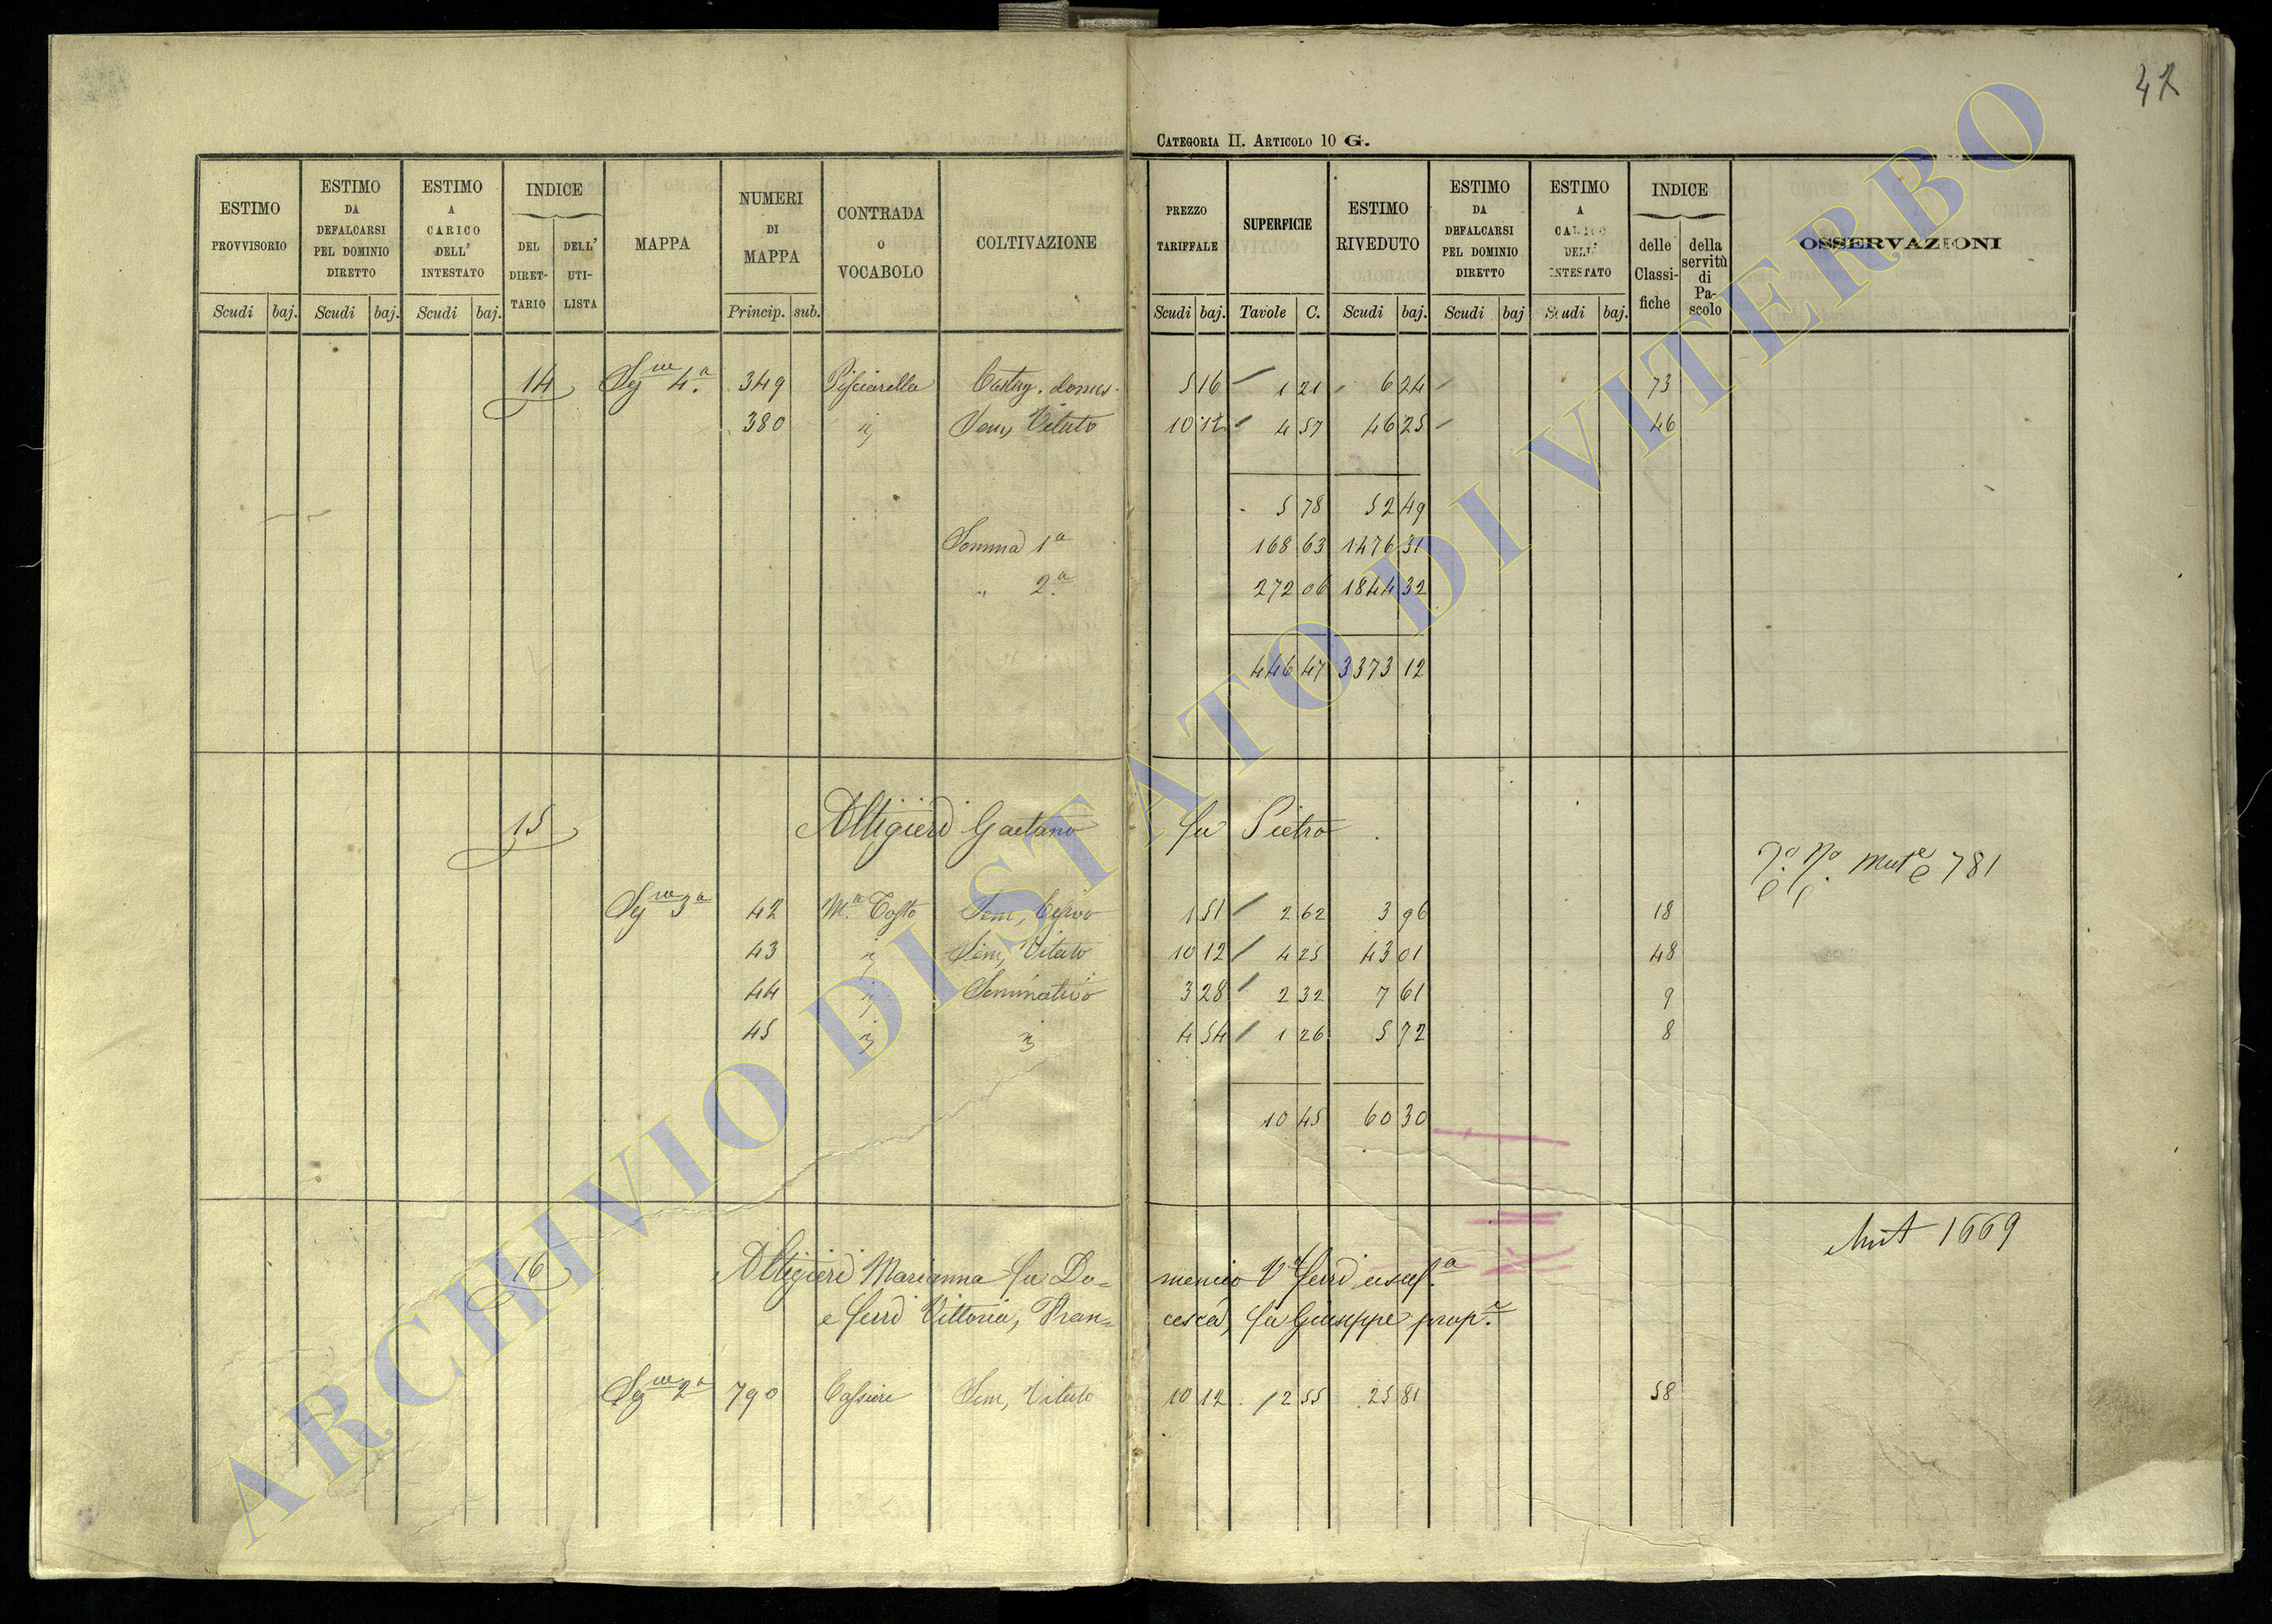 47
CATEGORIA II. ARTICOLO 10 G.
ESTIMO PROVVISORIO Scudi baj.
ESTIMO DA DEFALCARSI PEL DOMINIO DIRETTO Scudi baj.
ESTIMO A CARICO DELL' INTESTATO Scudi baj.
INDICE DEL DIRETTARIO DELL' UTILISTA
MAPPA
NUMERI DI MAPPA Princip. sub.
CONTRADA O VOCABOLO
COLTIVAZIONE
PREZZO TARIFFALE Scudi baj.
SUPERFICIE Tavole C.
ESTIMO RIVEDUTO Scudi baj.
ESTIMO DA DEFALCARSI PEL DOMINIO DIRETTO Scudi baj
ESTIMO A CARICO DELL' INTESTATO Scudi baj.
INDICE delle Classifiche della servitù di Pascolo
OSSERVAZIONI
14 Segne 4.a 349 Pisciarella Castag. domes. 5 16 1 21 6 24 73
380 Sem, Vitato 10 12 4 57 46 25 46
5 78 52 49
Somma 1a 168 63 1476 31
" 2a 272 06 1844 32
446 47 3373 12
15 Altigieri Gaetano fu Pietro
Mute 781
Segne 3a 42 M.a Tosto Sem, 1 51 2 62 3 96 18
43 Sem, Vitato 10 12 4 25 43 01 48
44 Seminativo 3 28 2 32 7 61 9
45 4 54 1 26 5 72 8
10 45 60 30
Mut 1669
16 Altigieri Marianna fu Domenico Va Ferri usufa
e Ferri Vittoria, Francesca, fu Giuseppe prop.
Segne 2a 790 Cassiere Sem, Vitato 10 12 2 55 25 81 58
ARCHIVIO DI STATO DI VITERBO